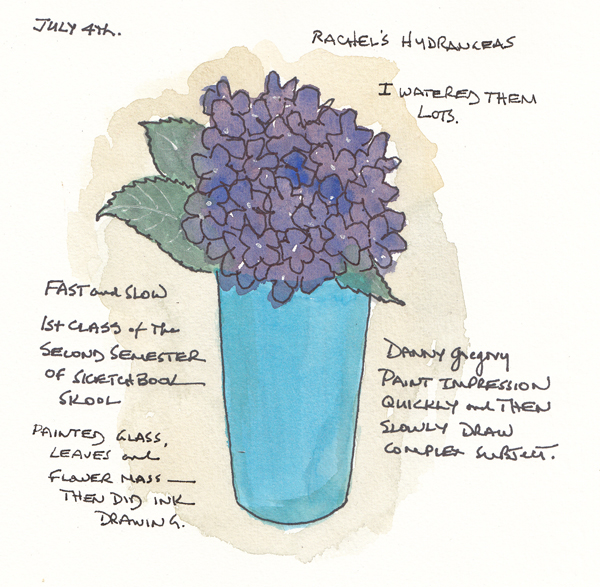 JULY 4th.
RACHEL'S HYDRANGEAS
I WATERED THEM
LOTS.
FAST and SLOW
1st CLASS of the
SECOND SEMESTER
OF SKETCHBOOK
SKOOL
PAINTED GLASS,
LEAVES and
FLOWER MASS —
THEN DID INK
DRAWING.
DANNY Gregory
PAINT IMPRESSION
QUICKLY and THEN
SLOWLY DRAW
COMPLEX SUBJECT.